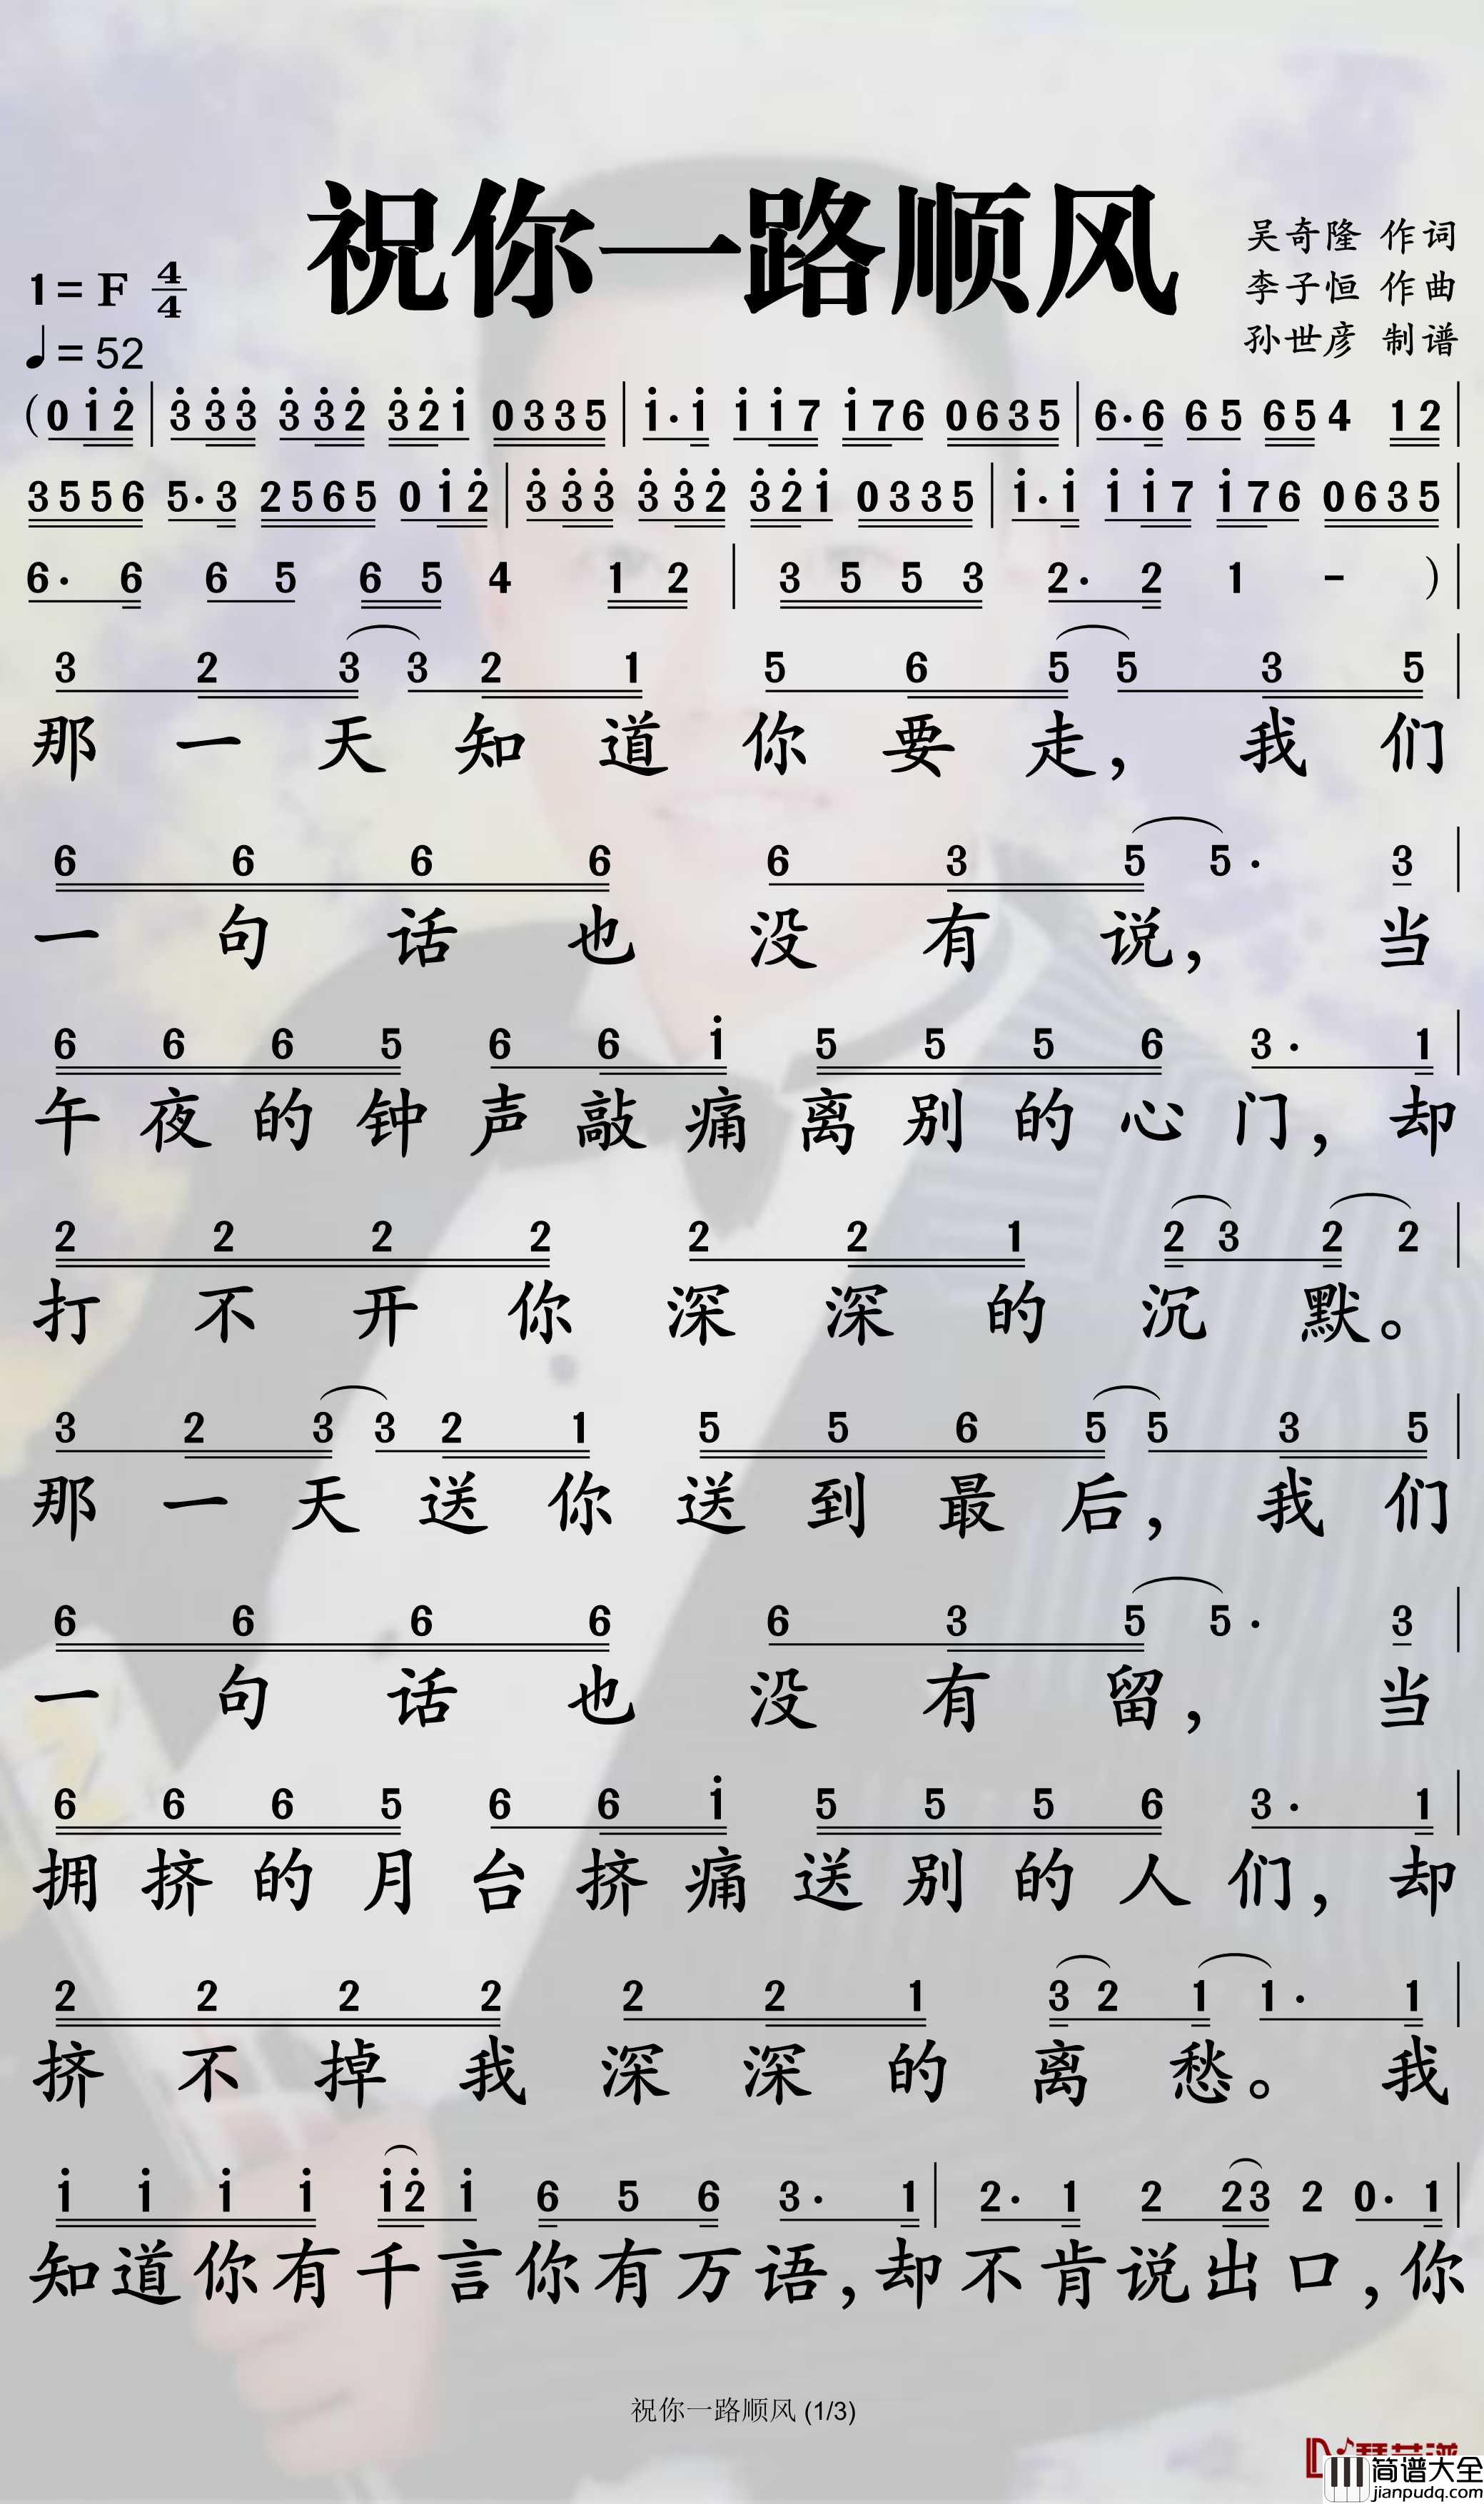 祝你一路顺风
吴奇隆 作词
1=F 4/4
李子恒 作曲
♩=52
孙世彦 制谱
(0 1̇ 2̇ | 3̇ 3̇ 3̇ 3̇ 3̇ 2̇ 3̇ 2̇ 1̇ 0 3 3 5 | 1̇· 1̇ 1̇ 1̇ 7 1̇ 7 6 0 6 3 5 | 6· 6 6 5 6 5 4 1 2 |
3 5 5 6 5· 3 2 5 6 5 0 1̇ 2̇ | 3̇ 3̇ 3̇ 3̇ 3̇ 2̇ 3̇ 2̇ 1̇ 0 3 3 5 | 1̇· 1̇ 1̇ 1̇ 7 1̇ 7 6 0 6 3 5 |
6· 6 6 5 6 5 4 1 2 | 3 5 5 3 2· 2 1 - ) |
3 2 3 3 2 1 5 6 5 5 3 5 |
那一天知道你要走，我们
6 6 6 6 6 3 5 5· 3 |
一句话也没有说，当
6 6 6 5 6 6 1̇ 5 5 5 6 3· 1 |
午夜的钟声敲痛离别的心门，却
2 2 2 2 2 2 1 2 3 2 2 |
打不开你深深的沉默。
3 2 3 3 2 1 5 5 6 5 5 3 5 |
那一天送你送到最后，我们
6 6 6 6 6 3 5 5· 3 |
一句话也没有留，当
6 6 6 5 6 6 1̇ 5 5 5 6 3· 1 |
拥挤的月台挤痛送别的人们，却
2 2 2 2 2 2 1 3 2 1 1· 1 |
挤不掉我深深的离愁。我
1̇ 1̇ 1̇ 1̇ 1̇ 2̇ 1̇ 6 5 6 3· 1 | 2· 1 2 2 3 2 0· 1 |
知道你有千言你有万语，却不肯说出口，你
祝你一路顺风 (1/3)
简谱大全
jianpudq.com